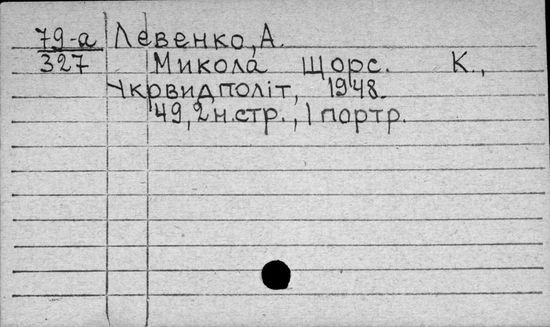 79-а Левенко, А.
327 Микола Щорс. К.,
Укрвидполіт, 1948.
49, 2 н. стр., 1 портр.